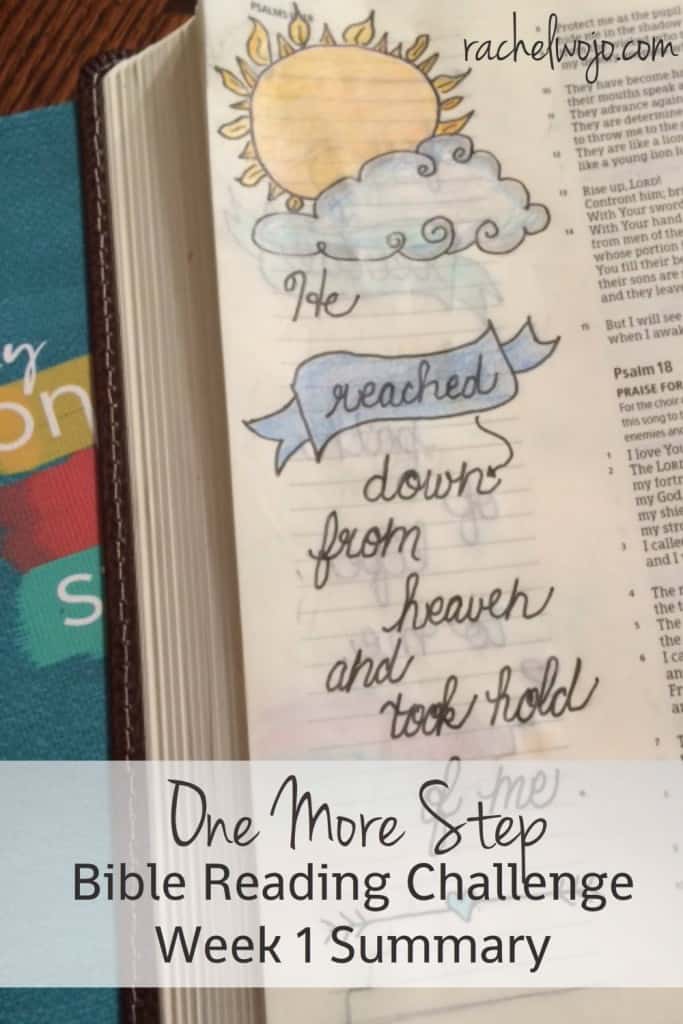 rachelwojo.com
PSALMS
He
reached
down
from
heaven
and
took hold
of me.
Protect me as the pupil
in the shadow
They have become
their mouths speak
They advance
They are determine
to throw me to the
They are like a lion
like a young lion
13 Rise up, LORD!
Confront him;
With Your sword
14 With Your hand
from men of the
whose portion
You fill their
their sons are
and they leave
15 But I will see
when I
Psalm 18
PRAISE FOR
For the choir
this song to
enemies and
1 I love
2 The LORD
my
my God
my
my
3 I
and I
4 The
the
5 The
the
6 I
7
on
s
One More Step
Bible Reading Challenge
Week 1 Summary